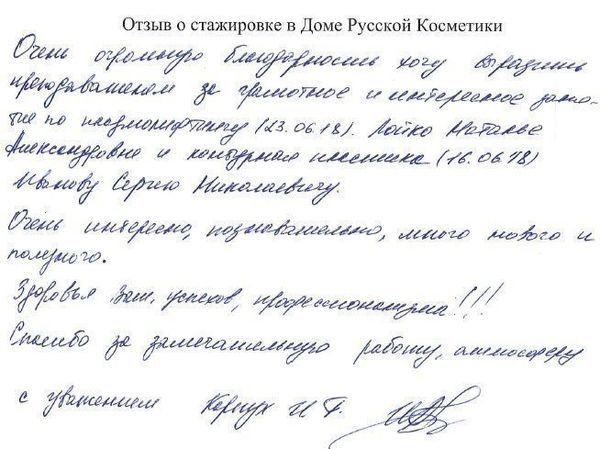 Отзыв о стажировке в Доме Русской Косметики
Очень огромную благодарность хочу выразить
преподавателям за грамотное и интересное заня-
тие по плазмолифтингу (13.06.18). Лойко Наталье
Александровне и контурная пластика (16.06.18)
Иванову Сергею Николаевичу.
Очень интересно, познавательно, много нового и
полезного.
Здоровья Вам, успехов, профессионализма!!!
Спасибо за замечательную работу, атмосферу
с уважением И. Г.